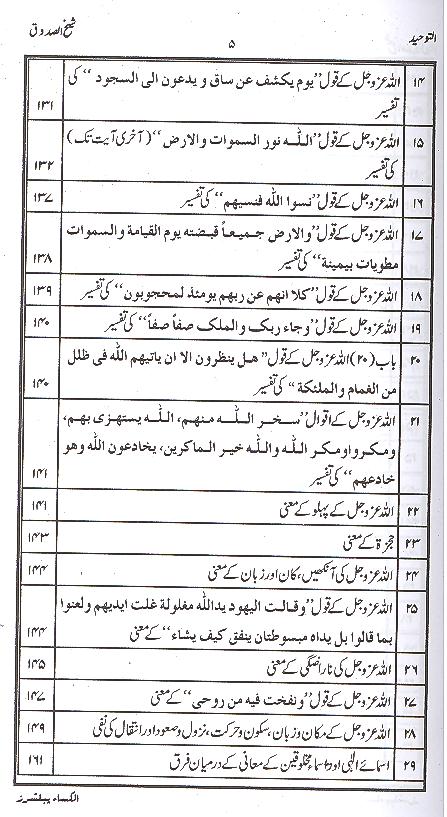 التوحید ۵ شیخ الصدوق
۱۴ اللہ عزوجل کے قول ”یوم یکشف عن ساق و یدعون الی السجود“ کی
تفسیر ۱۳۱
۱۵ اللہ عزوجل کے قول ”اللہ نور السموات والارض“ (آخری آیت تک)
کی تفسیر ۱۳۲
۱۶ اللہ عزوجل کے قول ”نسوا اللہ فنسیھم“ کی تفسیر ۱۳۷
۱۷ اللہ عزوجل کے قول ”والارض جمیعاً قبضتہ یوم القیامة والسموات
مطویات بیمینہ“ کی تفسیر ۱۳۸
۱۸ اللہ عزوجل کے قول ”کلا انھم عن ربھم یومئذ لمحجوبون“ کی تفسیر ۱۳۹
۱۹ اللہ عزوجل کے قول ”وجاء ربک والملک صفاً صفاً“ کی تفسیر ۱۴۰
۲۰ باب (۲۰) اللہ عزوجل کے قول ”ھل ینظرون الا ان یاتیھم اللہ فی ظلل
من الغمام والملئکة“ کی تفسیر ۱۴۰
۲۱ اللہ عزوجل کے اقوال ”سخر اللہ منھم، اللہ یستھزی بھم،
ومکرواومکر اللہ واللہ خیر الماکرین، یخادعون اللہ وھو
خادعھم“ کی تفسیر ۱۴۱
۲۲ اللہ عزوجل کے پہلو کے معنی ۱۴۱
۲۳ حجزة کے معنی ۱۴۳
۲۴ اللہ عزوجل کی آنکھیں، کان اور زبان کے معنی ۱۴۴
۲۵ اللہ عزوجل کے قول ”وقالت الیھود یداللہ مغلولة غلت ایدیھم ولعنوا
بما قالوا بل یداہ مبسوطتان ینفق کیف یشاء“ کے معنی ۱۴۴
۲۶ اللہ عزوجل کی ناراضگی کے معنی ۱۴۵
۲۷ اللہ عزوجل کے قول ”ونفخت فیہ من روحی“ کے معنی ۱۴۷
۲۸ اللہ عزوجل کے مکان وزبان، سکون وحرکت، نزول وصعود اور انتقال کی نفی ۱۴۹
۲۹ اسمائے الٰہی اور اسماء مخلوقین کے معانی کے درمیان فرق ۱۶۱
الکساء پبلیشرز